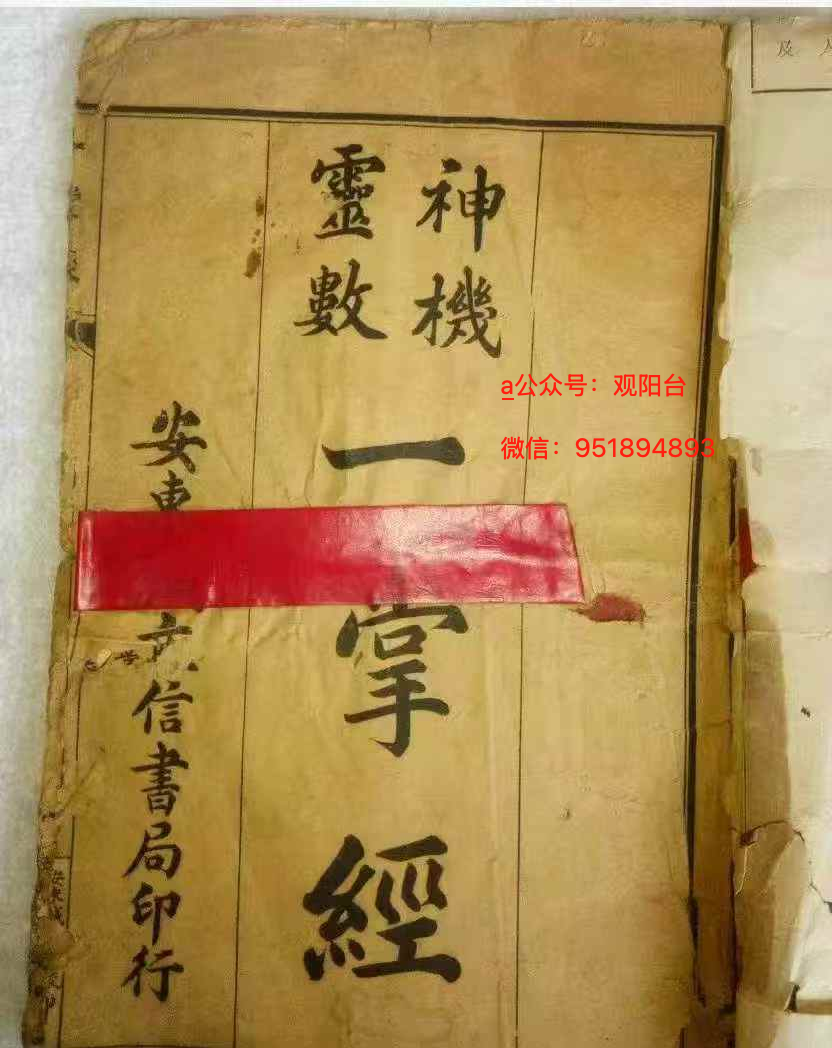 及
神機
靈數
一掌經
安東
信書局印行
a公众号：观阳台
微信：951894893